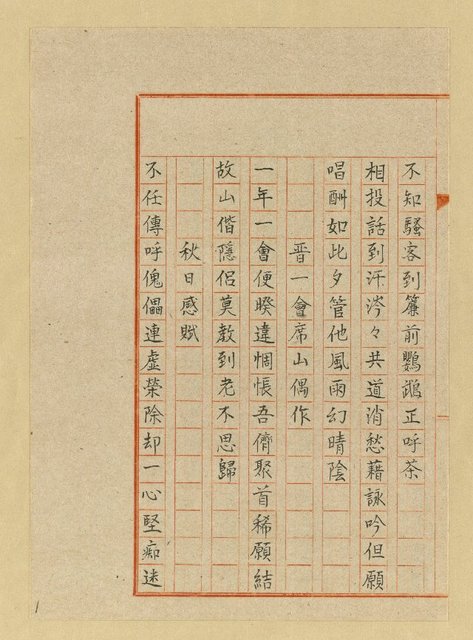 不知騷客到簾前鸚鵡正呼茶
相投話到汗涔々共道消愁藉詠吟但願
唱酬如此夕管他風雨幻晴陰
晋一會席山偶作
一年一會便暌違惆悵吾儕聚首稀願結
故山偕隱侶莫教到老不思歸
秋日感賦
不任傳呼傀儡連虛榮除却一心堅痴迷